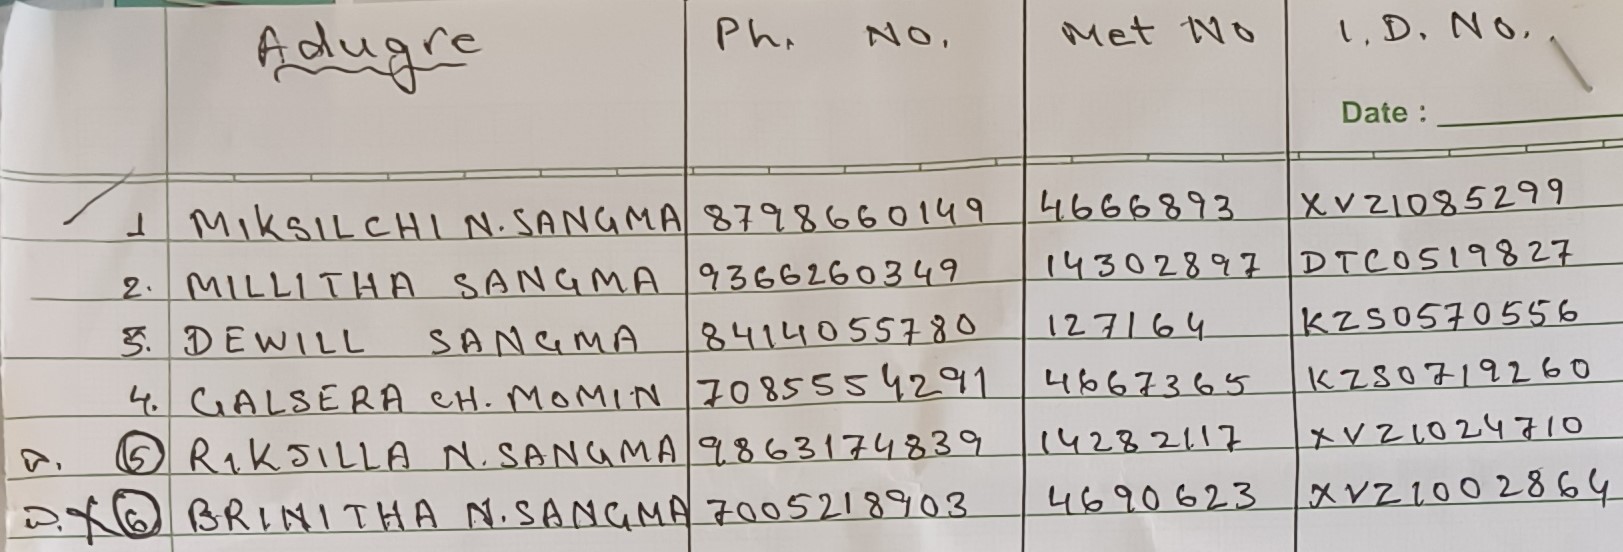 Adugre Ph. No. Met No I.D. No.
Date :
1 MIKSILCHI N. SANGMA 8798660149 4666893 XVZ1085299
2. MILLITHA SANGMA 9366260349 14302897 DTC0519827
3. DEWILL SANGMA 8414055780 127164 KZS0570556
4. GALSERA CH. MOMIN 7085554291 4667365 KZS0719260
5 RIKSILLA N. SANGMA 9863174839 14282117 XVZ1024710
6 BRINITHA N. SANGMA 7005218903 4690623 XVZ1002864